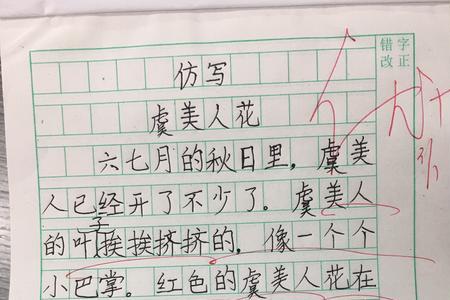 错字
改正
仿写
虞美人花
六七月的秋日里，虞美
人已经开了不少了。虞美人
的叶子挨挨挤挤的，像一个个
小巴掌。红色的虞美人花在